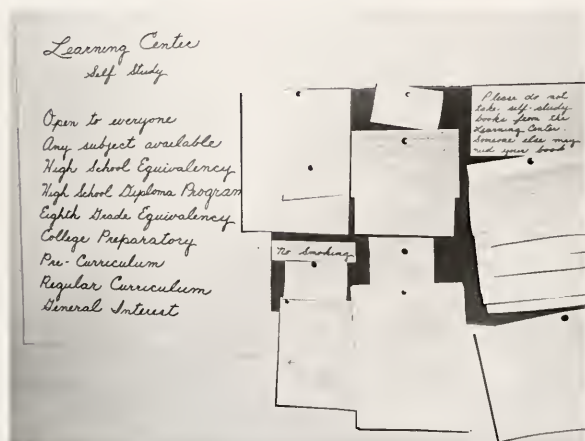 Learning Center
Self Study
Open to everyone
Any subject available
High School Equivalency
High School Diploma Program
Eighth Grade Equivalency
College Preparatory
Pre-Curriculum
Regular Curriculum
General Interest
Please do not
take self-study
books from the
Learning Center.
Someone else may
need your book
No Smoking